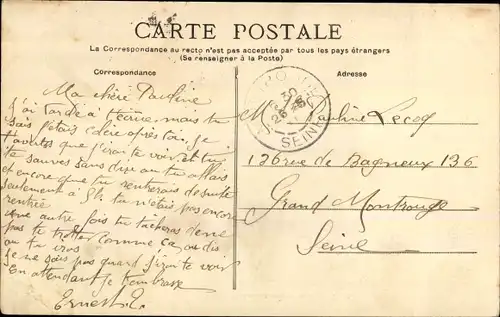 CARTE POSTALE
La Correspondance au recto n'est pas acceptée par tous les pays étrangers
(Se renseigner à la Poste)
Correspondance
Adresse
Ma chère Pauline
J'ai tardé à t'écrire, mais tu
sais j'étais colère après toi. Je
t'avertis que j'irai te voir et tu
te sauves sans dire où tu allais
et encore que tu rentrerais de suite
seulement à 5h tu n'étais pas encore
rentrée
Une autre fois tu tâcheras de ne
pas te trotter comme ça, ou dis
où tu iras
Je ne sais pas quand j'irai te voir
En attendant je t'embrasse
Ernest L.
M Pauline Lecoq
136 rue de Bagneux 136
Grand Montrouge
Seine
SEINE